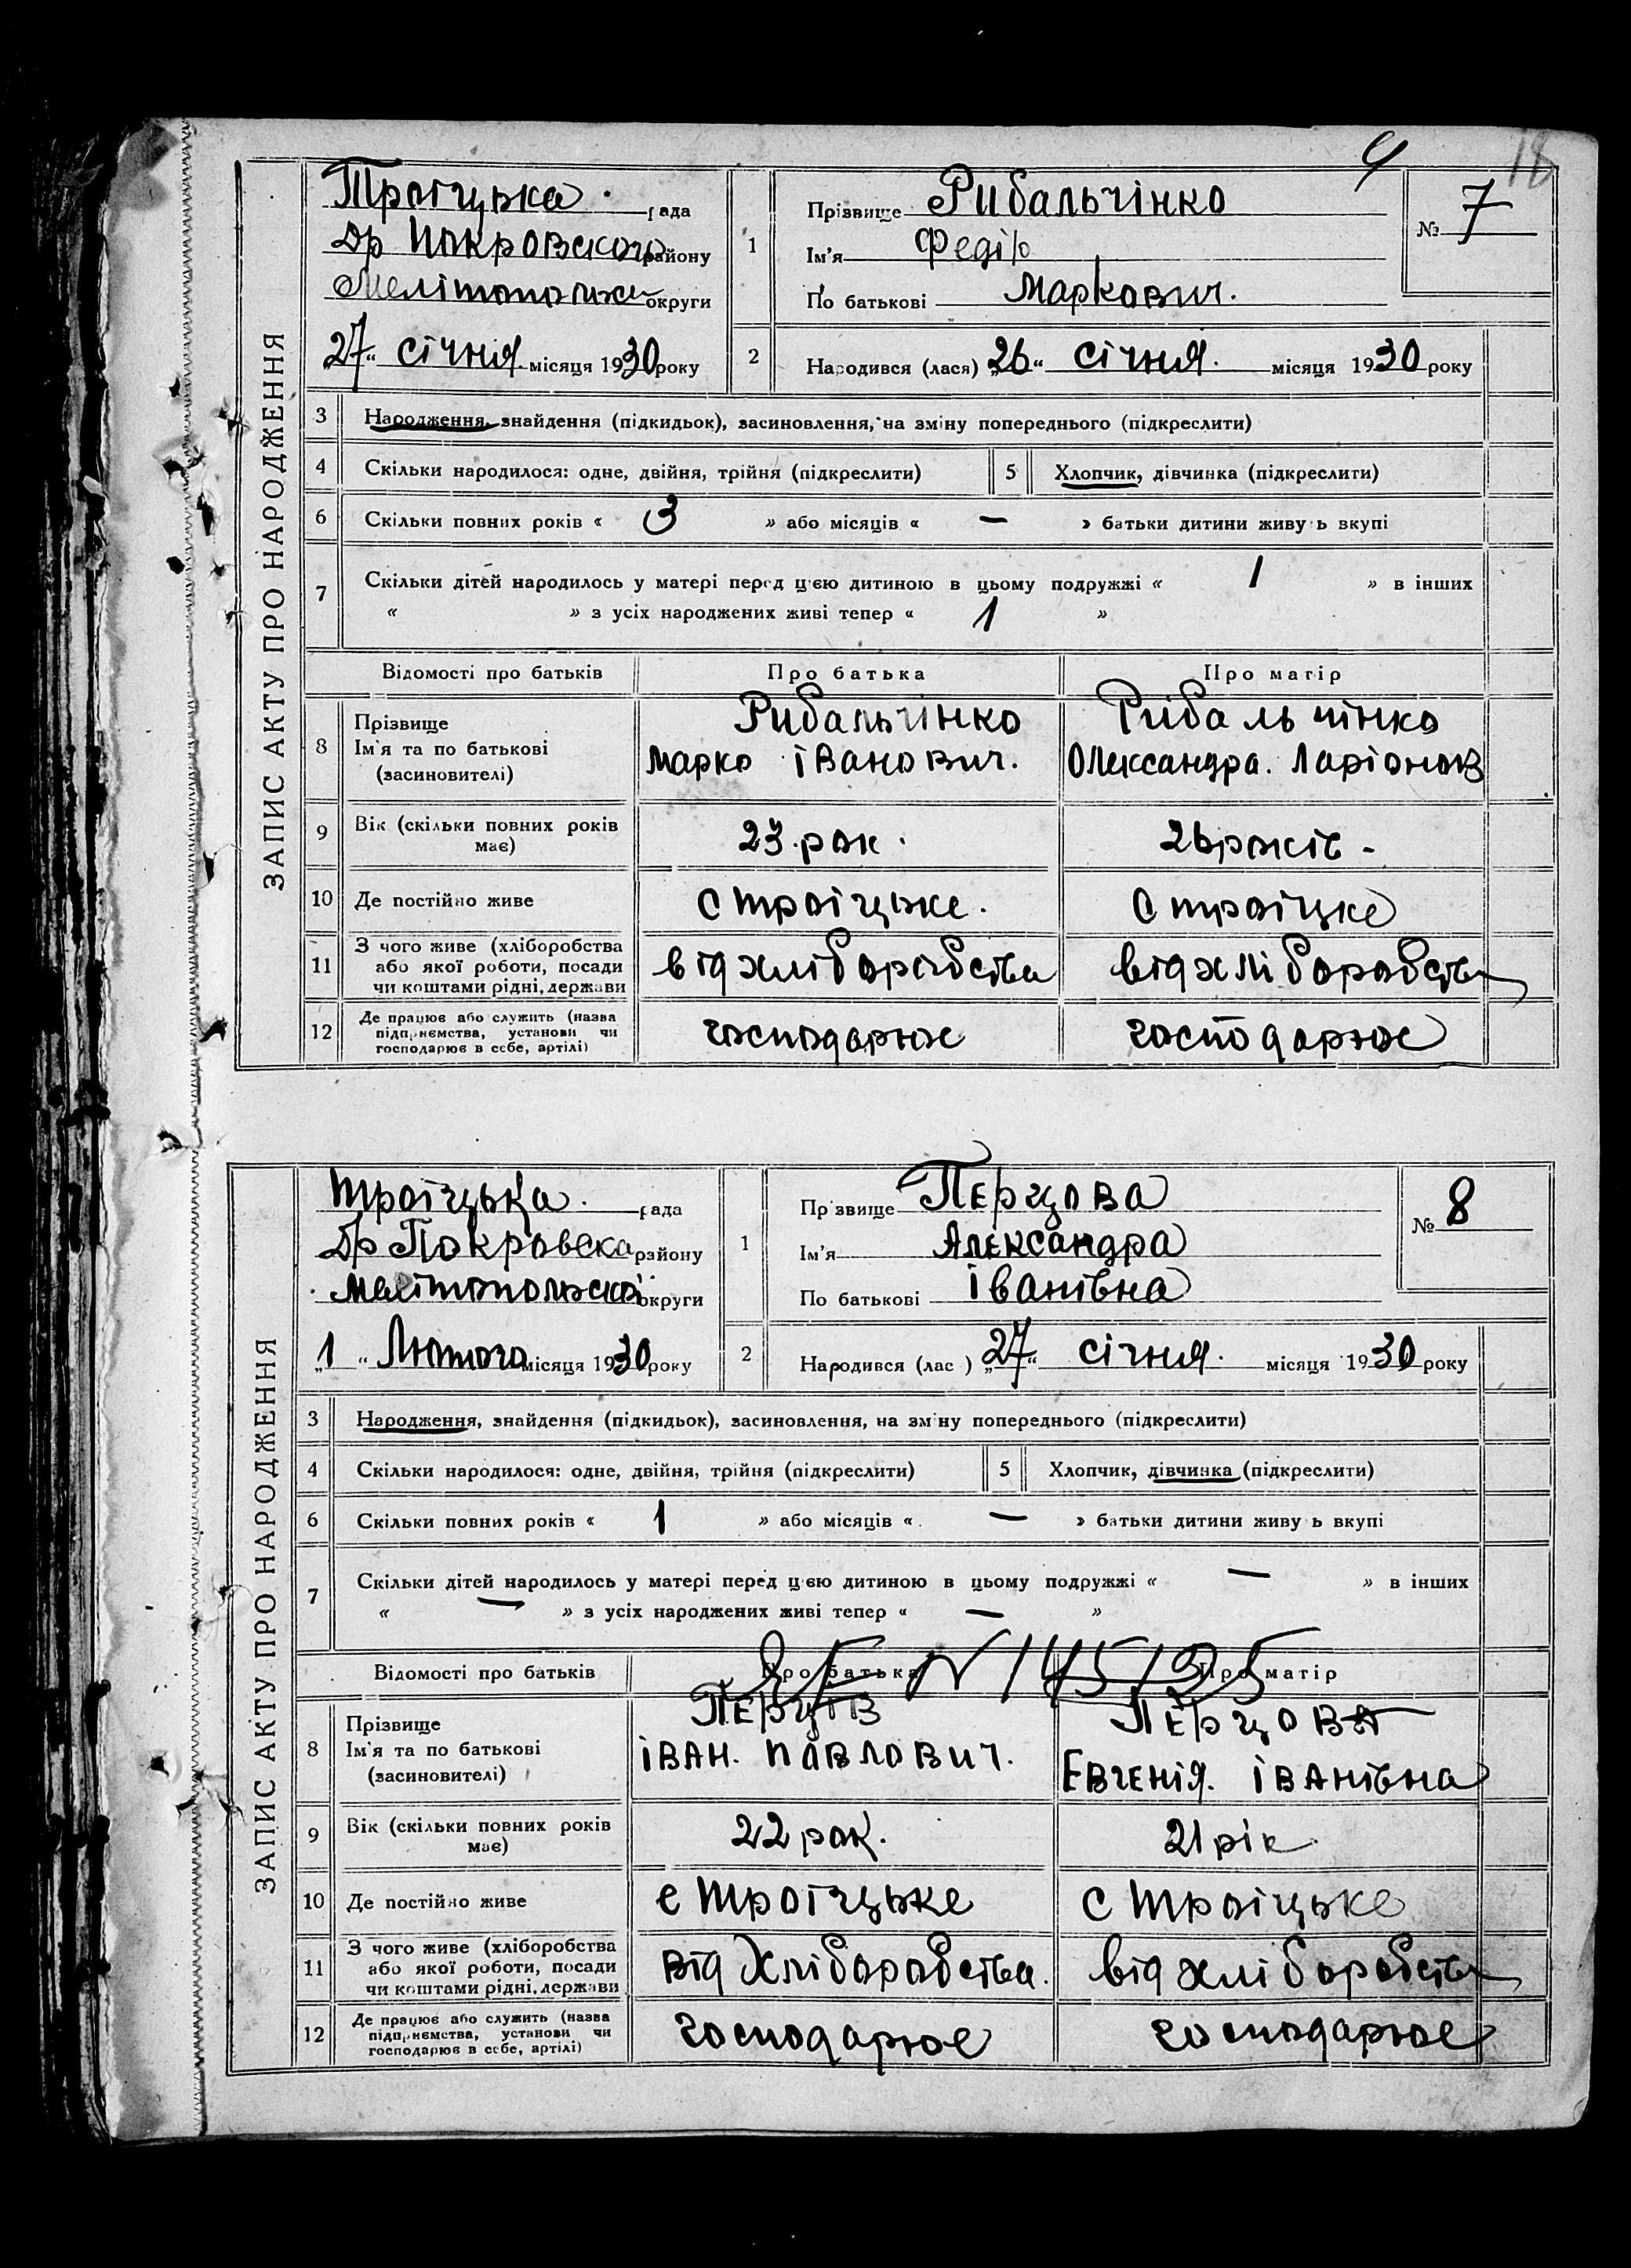 9 18
ЗАПИС АКТУ ПРО НАРОДЖЕННЯ
Троїцька рада
Др Покровского району
округи
„27“ січня місяця 1930 року
1 Прізвище Рибальчінко
Ім'я Федір
По батькові Маркович.
№ 7
2 Народився (лася) „26“ січня. місяця 1930 року
3 Народження, знайдення (підкидьок), засиновлення, на зміну попереднього (підкреслити)
4 Скільки народилося: одне, двійня, трійня (підкреслити) 5 Хлопчик, дівчинка (підкреслити)
6 Скільки повних років « 3 » або місяців « — » батьки дитини живуть вкупі
7 Скільки дітей народилось у матері перед цією дитиною в цьому подружжі « 1 » в інших
« » з усіх народжених живі тепер « 1 »
Відомості про батьків Про батька Про матір
8 Прізвище Рибальчінко Рибальчінко
Ім'я та по батькові Марко Іванович. Олександра. Ларіонов
(засиновителі)
9 Вік (скільки повних років має) 23 рок. 26 років -
10 Де постійно живе с Троїцьке. с троіцке
11 З чого живе (хліборобства або якої роботи, посади чи коштами рідні, держави від хліборобства від хліборобства
12 Де працює або служить (назва підприємства, установи чи господарює в себе, артілі) господарює господарює
ЗАПИС АКТУ ПРО НАРОДЖЕННЯ
Троїцька. рада
Др Покровска району
Мелітопольскої округи
„1“ Лютого місяця 1930 року
1 Прізвище Перцова
Ім'я Александра
По батькові Іванівна
№ 8
2 Народився (лас ) „27“ січня. місяця 1930 року
3 Народження, знайдення (підкидьок), засиновлення, на зміну попереднього (підкреслити)
4 Скільки народилося: одне, двійня, трійня (підкреслити) 5 Хлопчик, дівчинка (підкреслити)
6 Скільки повних років « 1 » або місяців « — » батьки дитини живуть вкупі
7 Скільки дітей народилось у матері перед цією дитиною в цьому подружжі « — » в інших
« — » з усіх народжених живі тепер « — »
Відомості про батьків Про батька Про матір
8 Прізвище Перцов Перцова
Ім'я та по батькові Іван. Павлович. Евгенія. Іванівна
(засиновителі)
9 Вік (скільки повних років має) 22 рок. 21 рік
10 Де постійно живе с Троїцьке с Троіцьке
11 З чого живе (хліборобства або якої роботи, посади чи коштами рідні, держави від Хліборобства. від хліборобства
12 Де працює або служить (назва підприємства, установи чи господарює в себе, артілі) господарює господарює